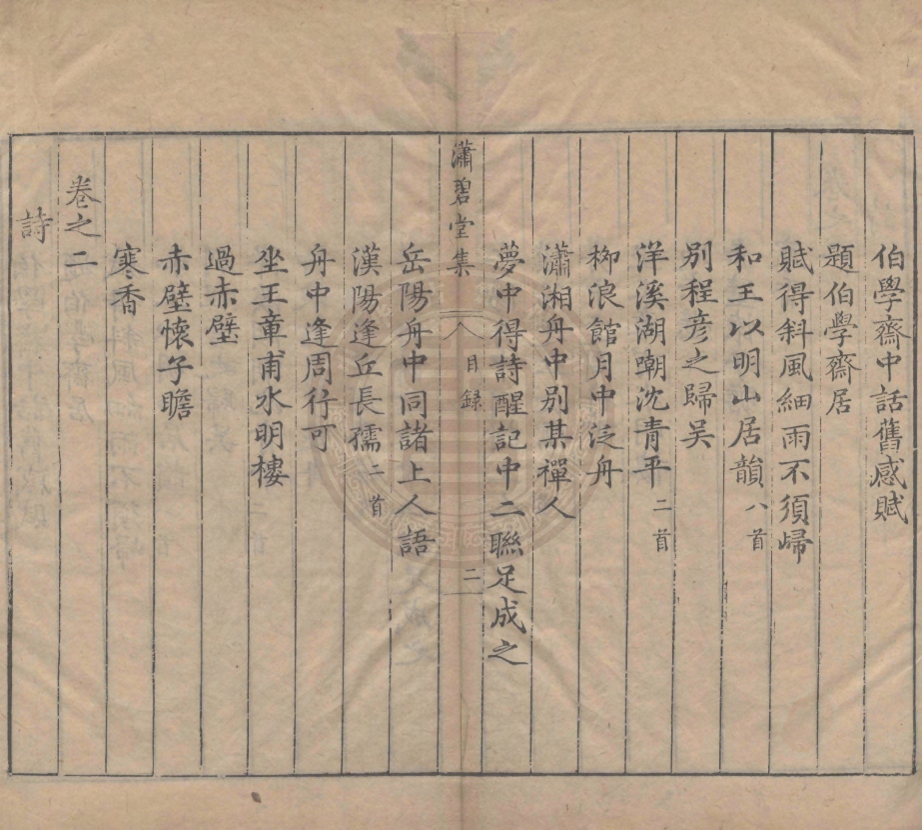 伯學齋中話舊感賦
題伯學齋居
賦得斜風細雨不須歸
和王以明山居韻 八首
別程彦之歸吳
洋溪湖嘲沈青平 二首
栁浪館月中泛舟
瀟湘舟中別某禪人
夢中得詩醒記中二聯足成之
瀟碧堂集 目録 二
岳陽舟中同諸上人語
漢陽逢丘長孺 二首
舟中逢周行可
坐王章甫水明樓
過赤壁
赤壁懷子瞻
寒香
卷之二
詩